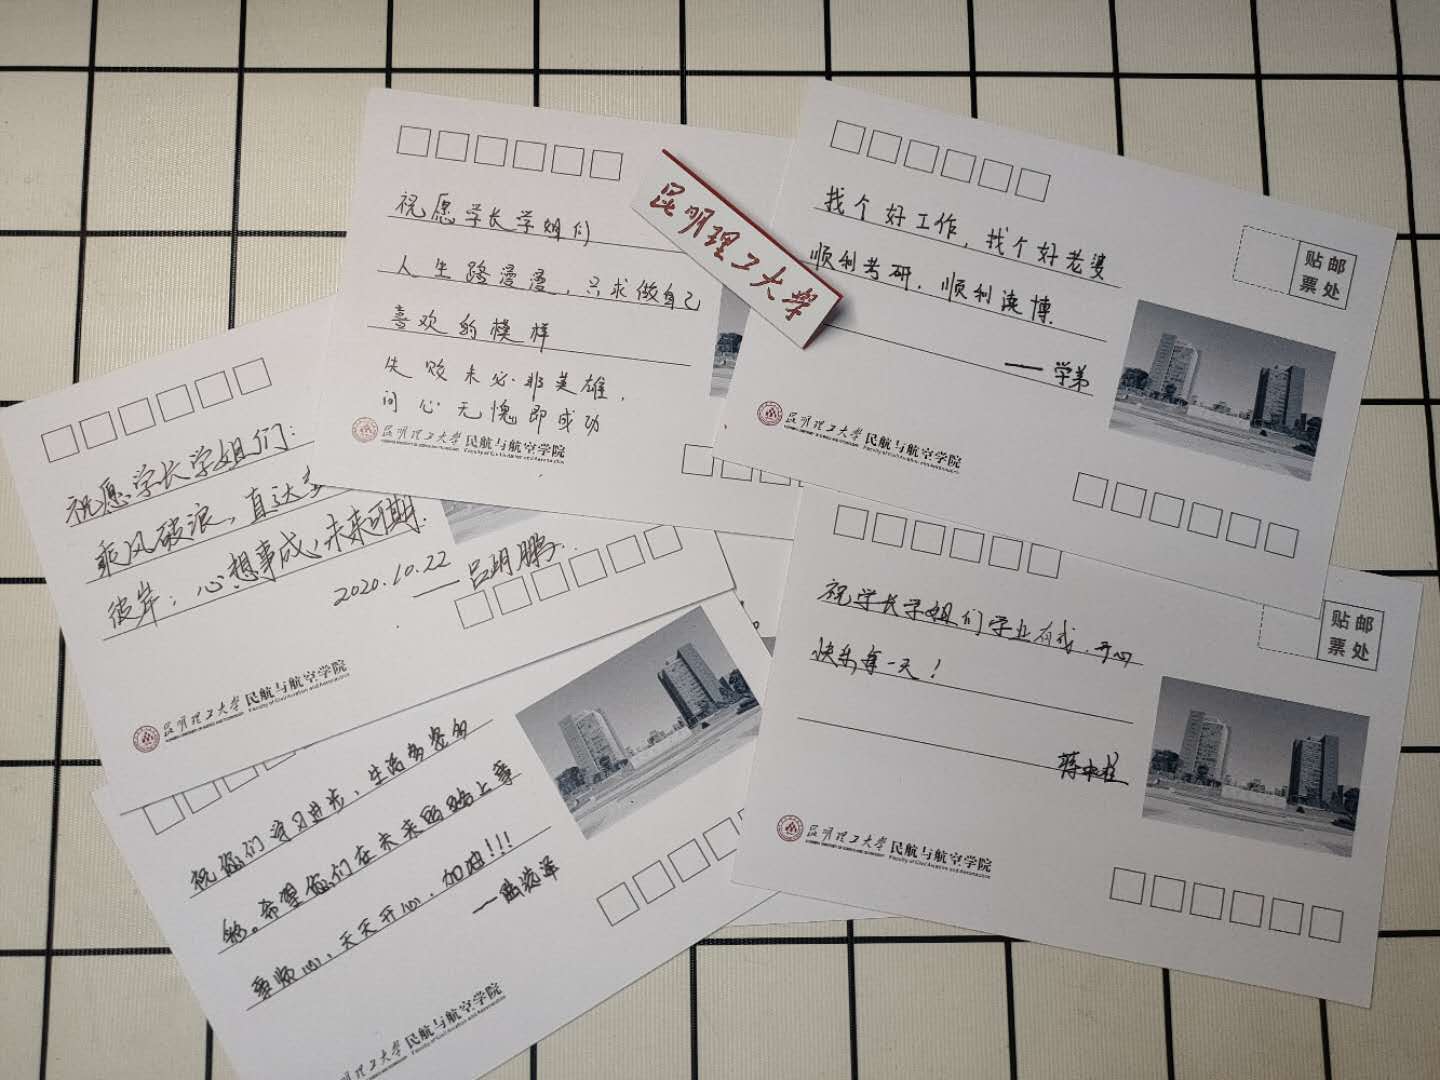 昆明理工大学
祝愿学长学姐们
人生路漫漫，只求做自己
喜欢的模样
失败未必非英雄，
问心无愧即成功
昆明理工大学 民航与航空学院
Faculty of Civil Aviation and Aeronautics
找个好工作，找个好老婆
顺利考研，顺利读博.
——学弟
贴邮
票处
昆明理工大学 民航与航空学院
Faculty of Civil Aviation and Aeronautics
祝愿学长学姐们：
乘风破浪，直达
彼岸；心想事成，未来可期.
2020.10.22 ——吕明鹏.
昆明理工大学 民航与航空学院
Faculty of Civil Aviation and Aeronautics
祝学长学姐们学业有成，开心
快乐每一天！
贴邮
票处
昆明理工大学 民航与航空学院
Faculty of Civil Aviation and Aeronautics
祝你们学习进步，生活多姿多
彩。希望你们在未来的路上事
事顺心，天天开心，加油!!!
昆明理工大学 民航与航空学院
Faculty of Civil Aviation and Aeronautics